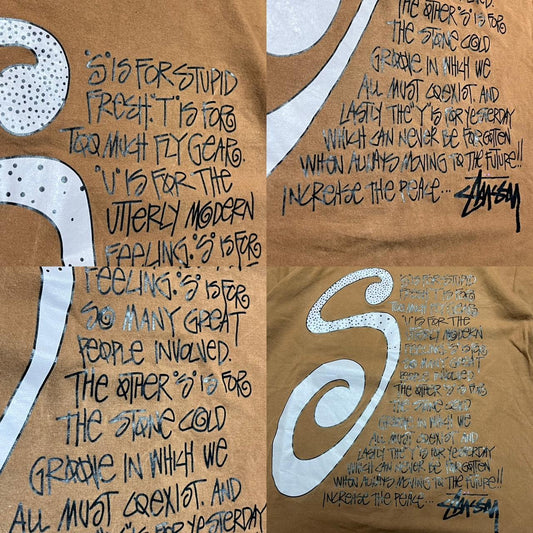 "S" IS FOR STUPID
FRESH. "T" IS FOR
TOO MUCH FLY GEAR.
"U" IS FOR THE
UTTERLY MODERN
FEELING. "S" IS FOR
THE OTHER "S" IS FOR
THE STONE COLD
GROOVE IN WHICH WE
ALL MUST COEXIST. AND
LASTLY THE "Y" IS FOR YESTERDAY
WHICH CAN NEVER BE FORGOTTEN
WHEN ALWAYS MOVING TO THE FUTURE!!
INCREASE THE PEACE... STUSSY
FEELING. "S" IS FOR
SO MANY GREAT
PEOPLE INVOLVED.
THE OTHER "S" IS FOR
THE STONE COLD
GROOVE IN WHICH WE
ALL MUST COEXIST. AND
"Y" IS FOR YESTERDAY
"S" IS FOR STUPID
FRESH. "T" IS FOR
TOO MUCH FLY GEAR.
"U" IS FOR THE
UTTERLY MODERN
FEELING. "S" IS FOR
SO MANY GREAT
PEOPLE INVOLVED.
THE OTHER "S" IS FOR
THE STONE COLD
GROOVE IN WHICH WE
ALL MUST COEXIST. AND
LASTLY THE "Y" IS FOR YESTERDAY
WHICH CAN NEVER BE FORGOTTEN
WHEN ALWAYS MOVING TO THE FUTURE!!
INCREASE THE PEACE... STUSSY